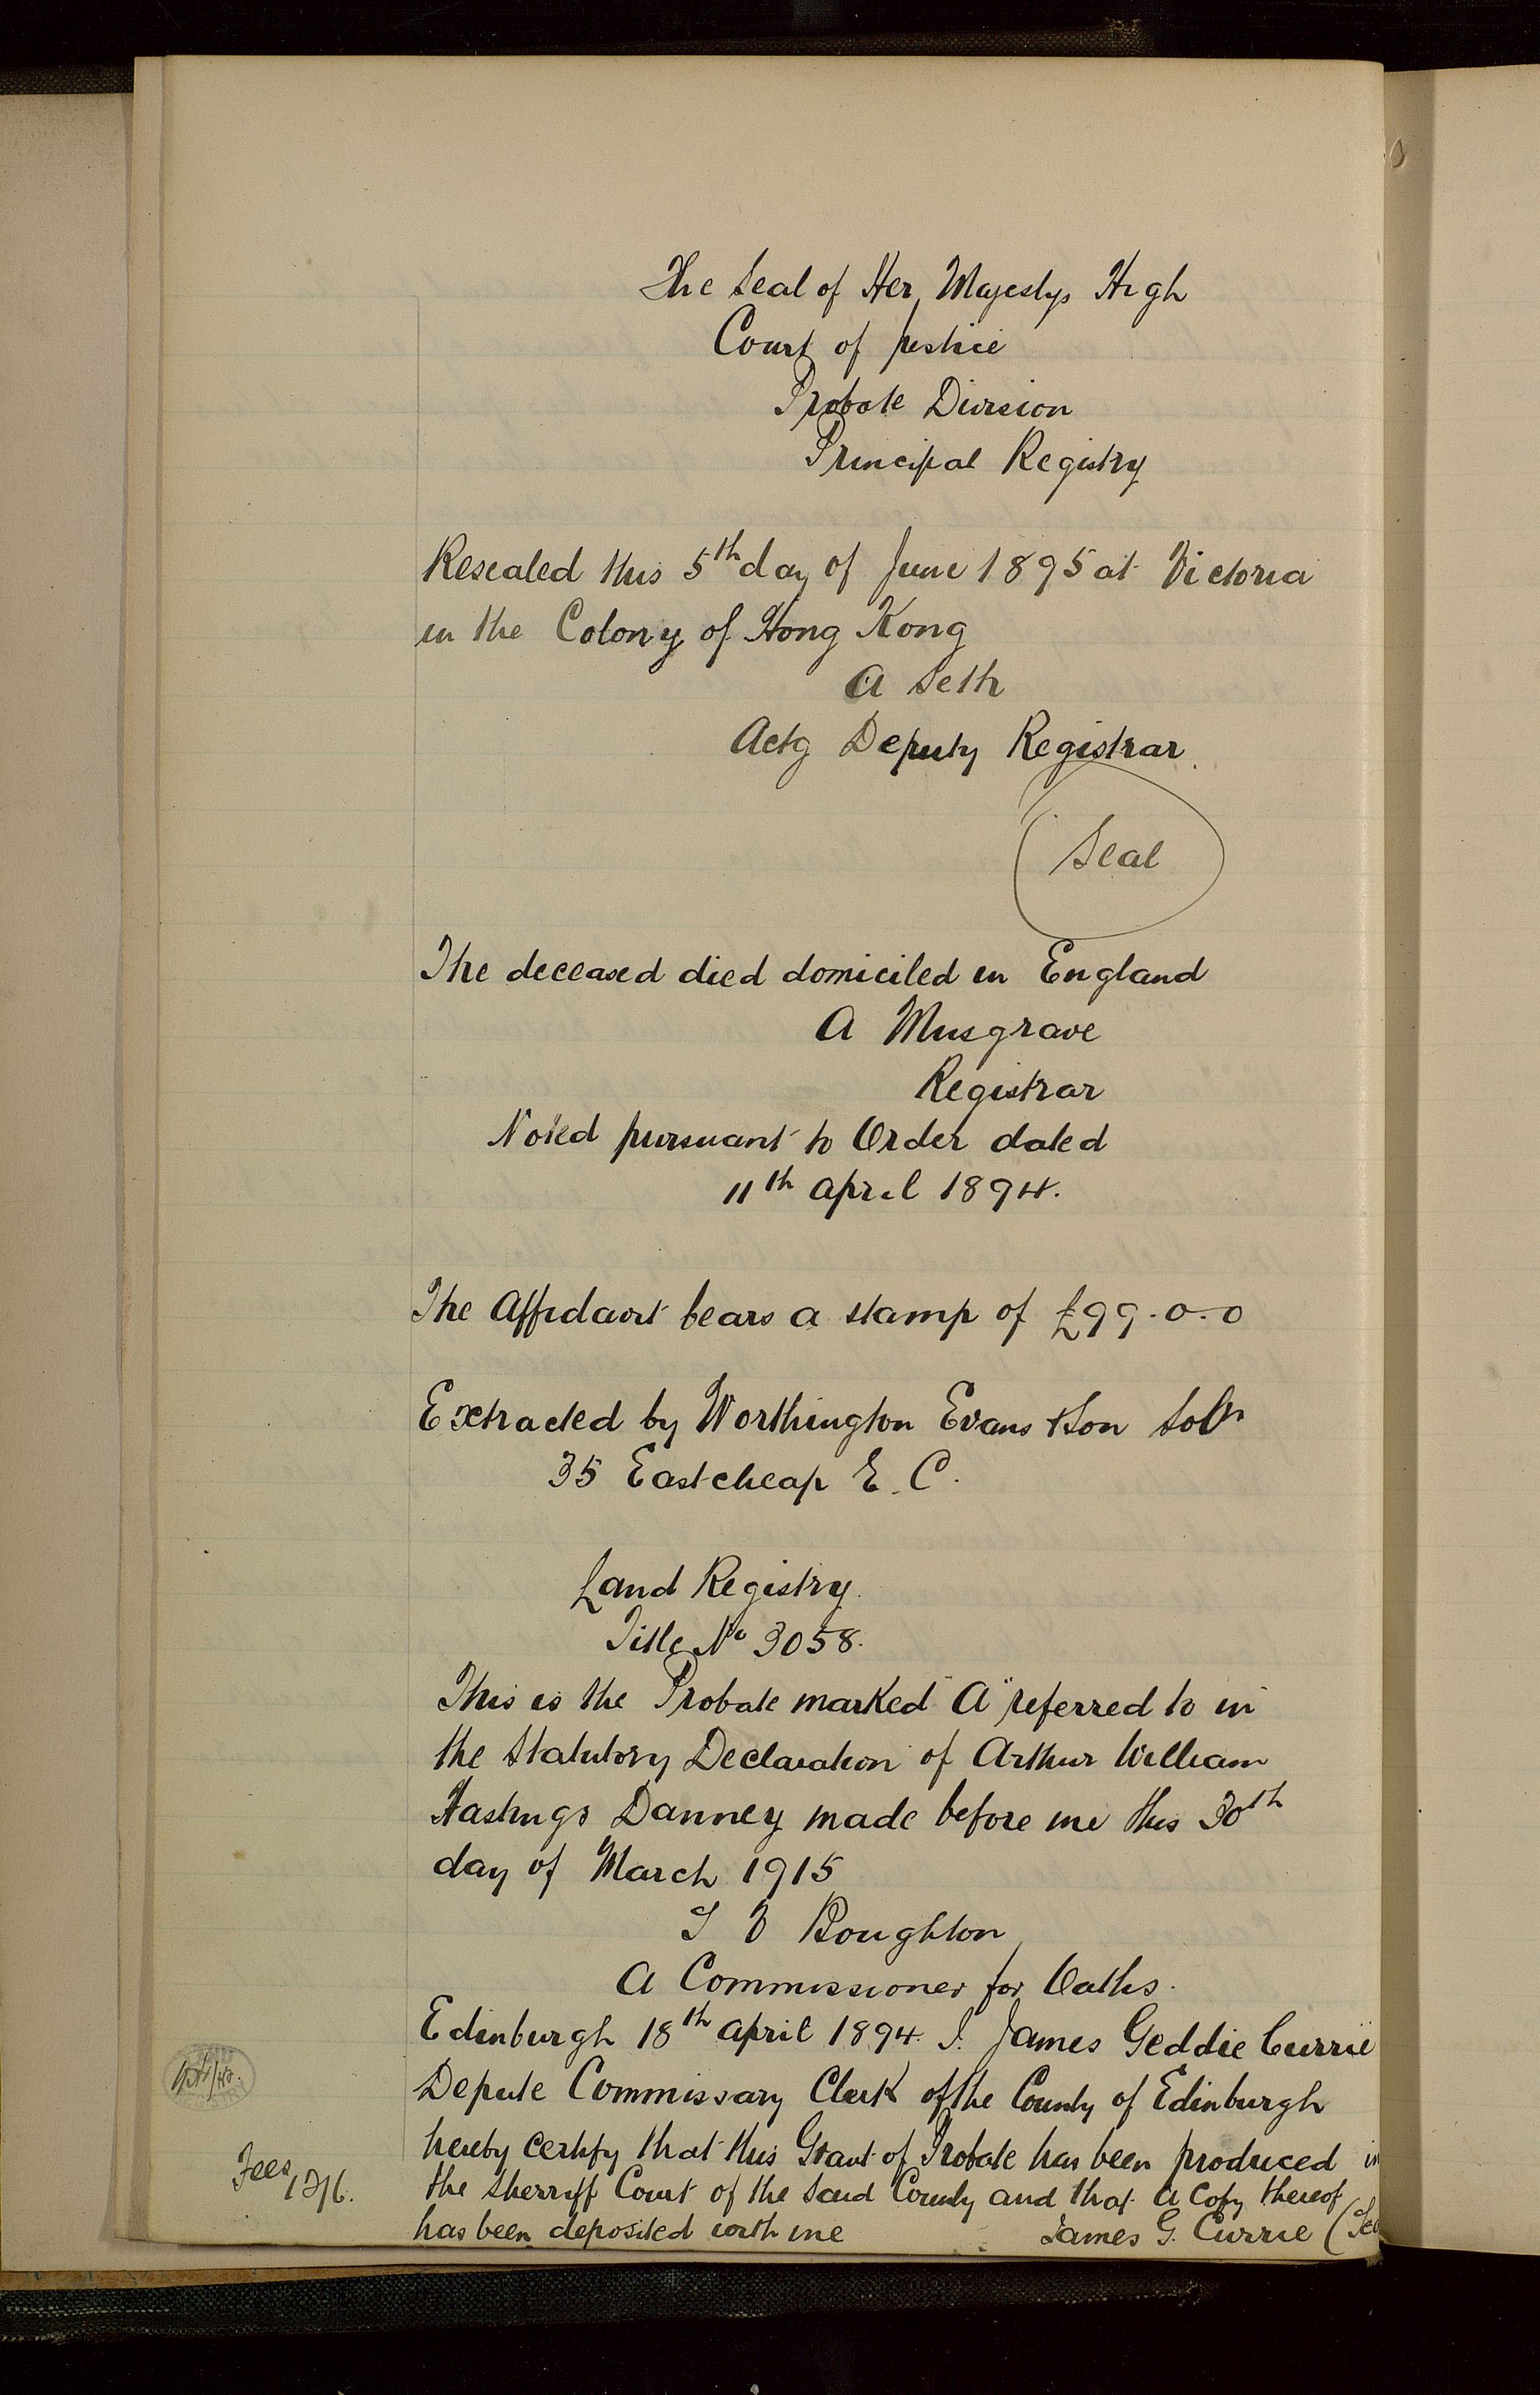 The Seal of Her Majestys High
Court of Justice
Probate Division
Principal Registry
Resealed this 5th day of June 1895 at Victoria
in the Colony of Hong Kong
A Seth
Actg Deputy Registrar.
Seal
The deceased died domiciled in England
A Musgrave
Registrar
Noted pursuant to Order dated
11th April 1894.
The Affidavit bears a stamp of £99.0.0
Extracted by Worthington Evans & Son Solrs
35 Eastcheap E.C.
Land Registry.
Title No 3058.
This is the Probate marked "A" referred to in
the Statutory Declaration of Arthur William
Hastings Danney made before me this 30th
day of March 1915
Boughton
A Commissioner for Oaths.
Edinburgh 18th April 1894. I. James Geddie Currie
Depute Commissary Clerk of the County of Edinburgh
hereby certify that this Grant of Probate has been produced in
Fees 13/6.
the Sherriff Court of the said County and that a copy thereof
has been deposited with me James G. Currie